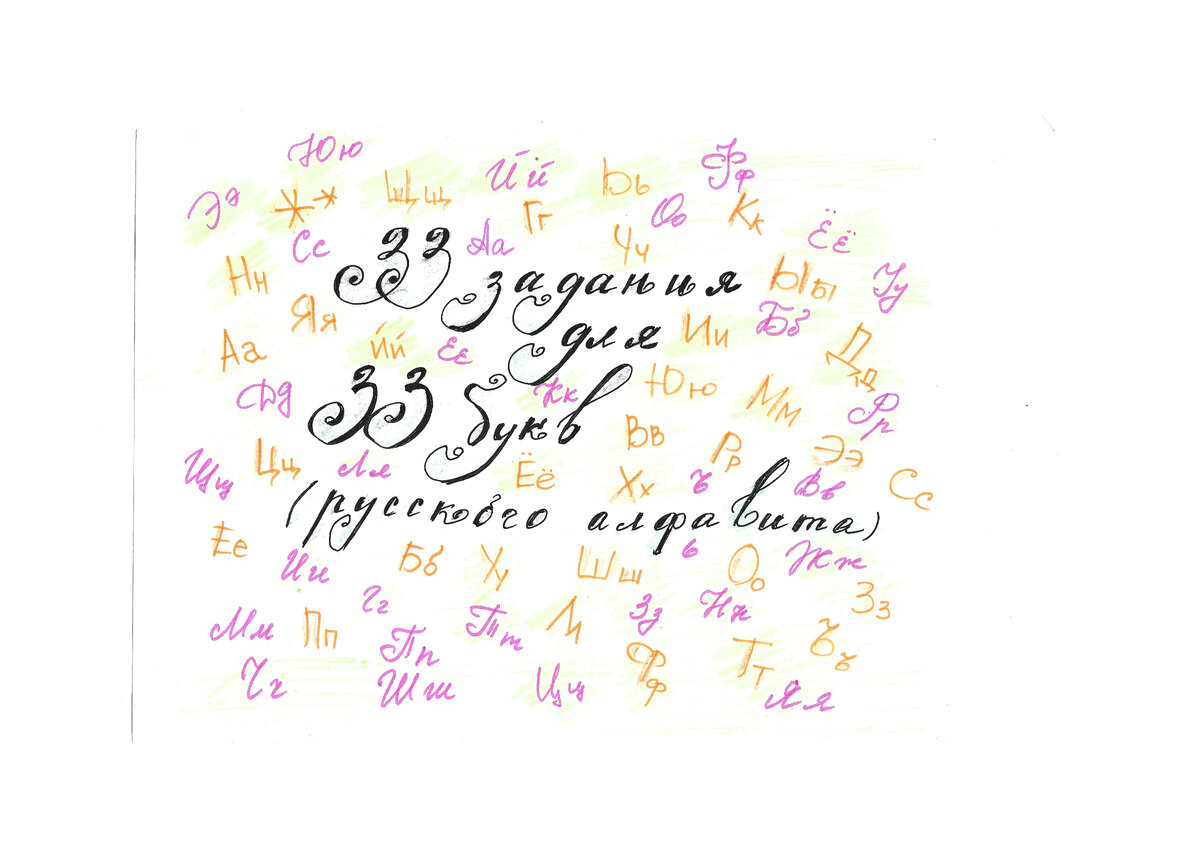 Юю
Йй
Ээ Жж Щщ Ьь Фф
Гг Оо Кк
Сс Аа Чч Ёё
33 задания
Нн Ыы Уу
Яя для Ии Бб
Аа Йй Ее Дд
33 букв
Дд Кк Юю Мм Рр
Вв
Щщ Цц Лл Ёё Хх Рр ъ Ээ Вв Сс
(русского алфавита)
Ее Ии Бб Уу Шш ь Оо Жж
Гг Зз Нн Зз
Мм Пп Пп Тт Л Ъъ
Чч Шш Цц Фф Тт Яя